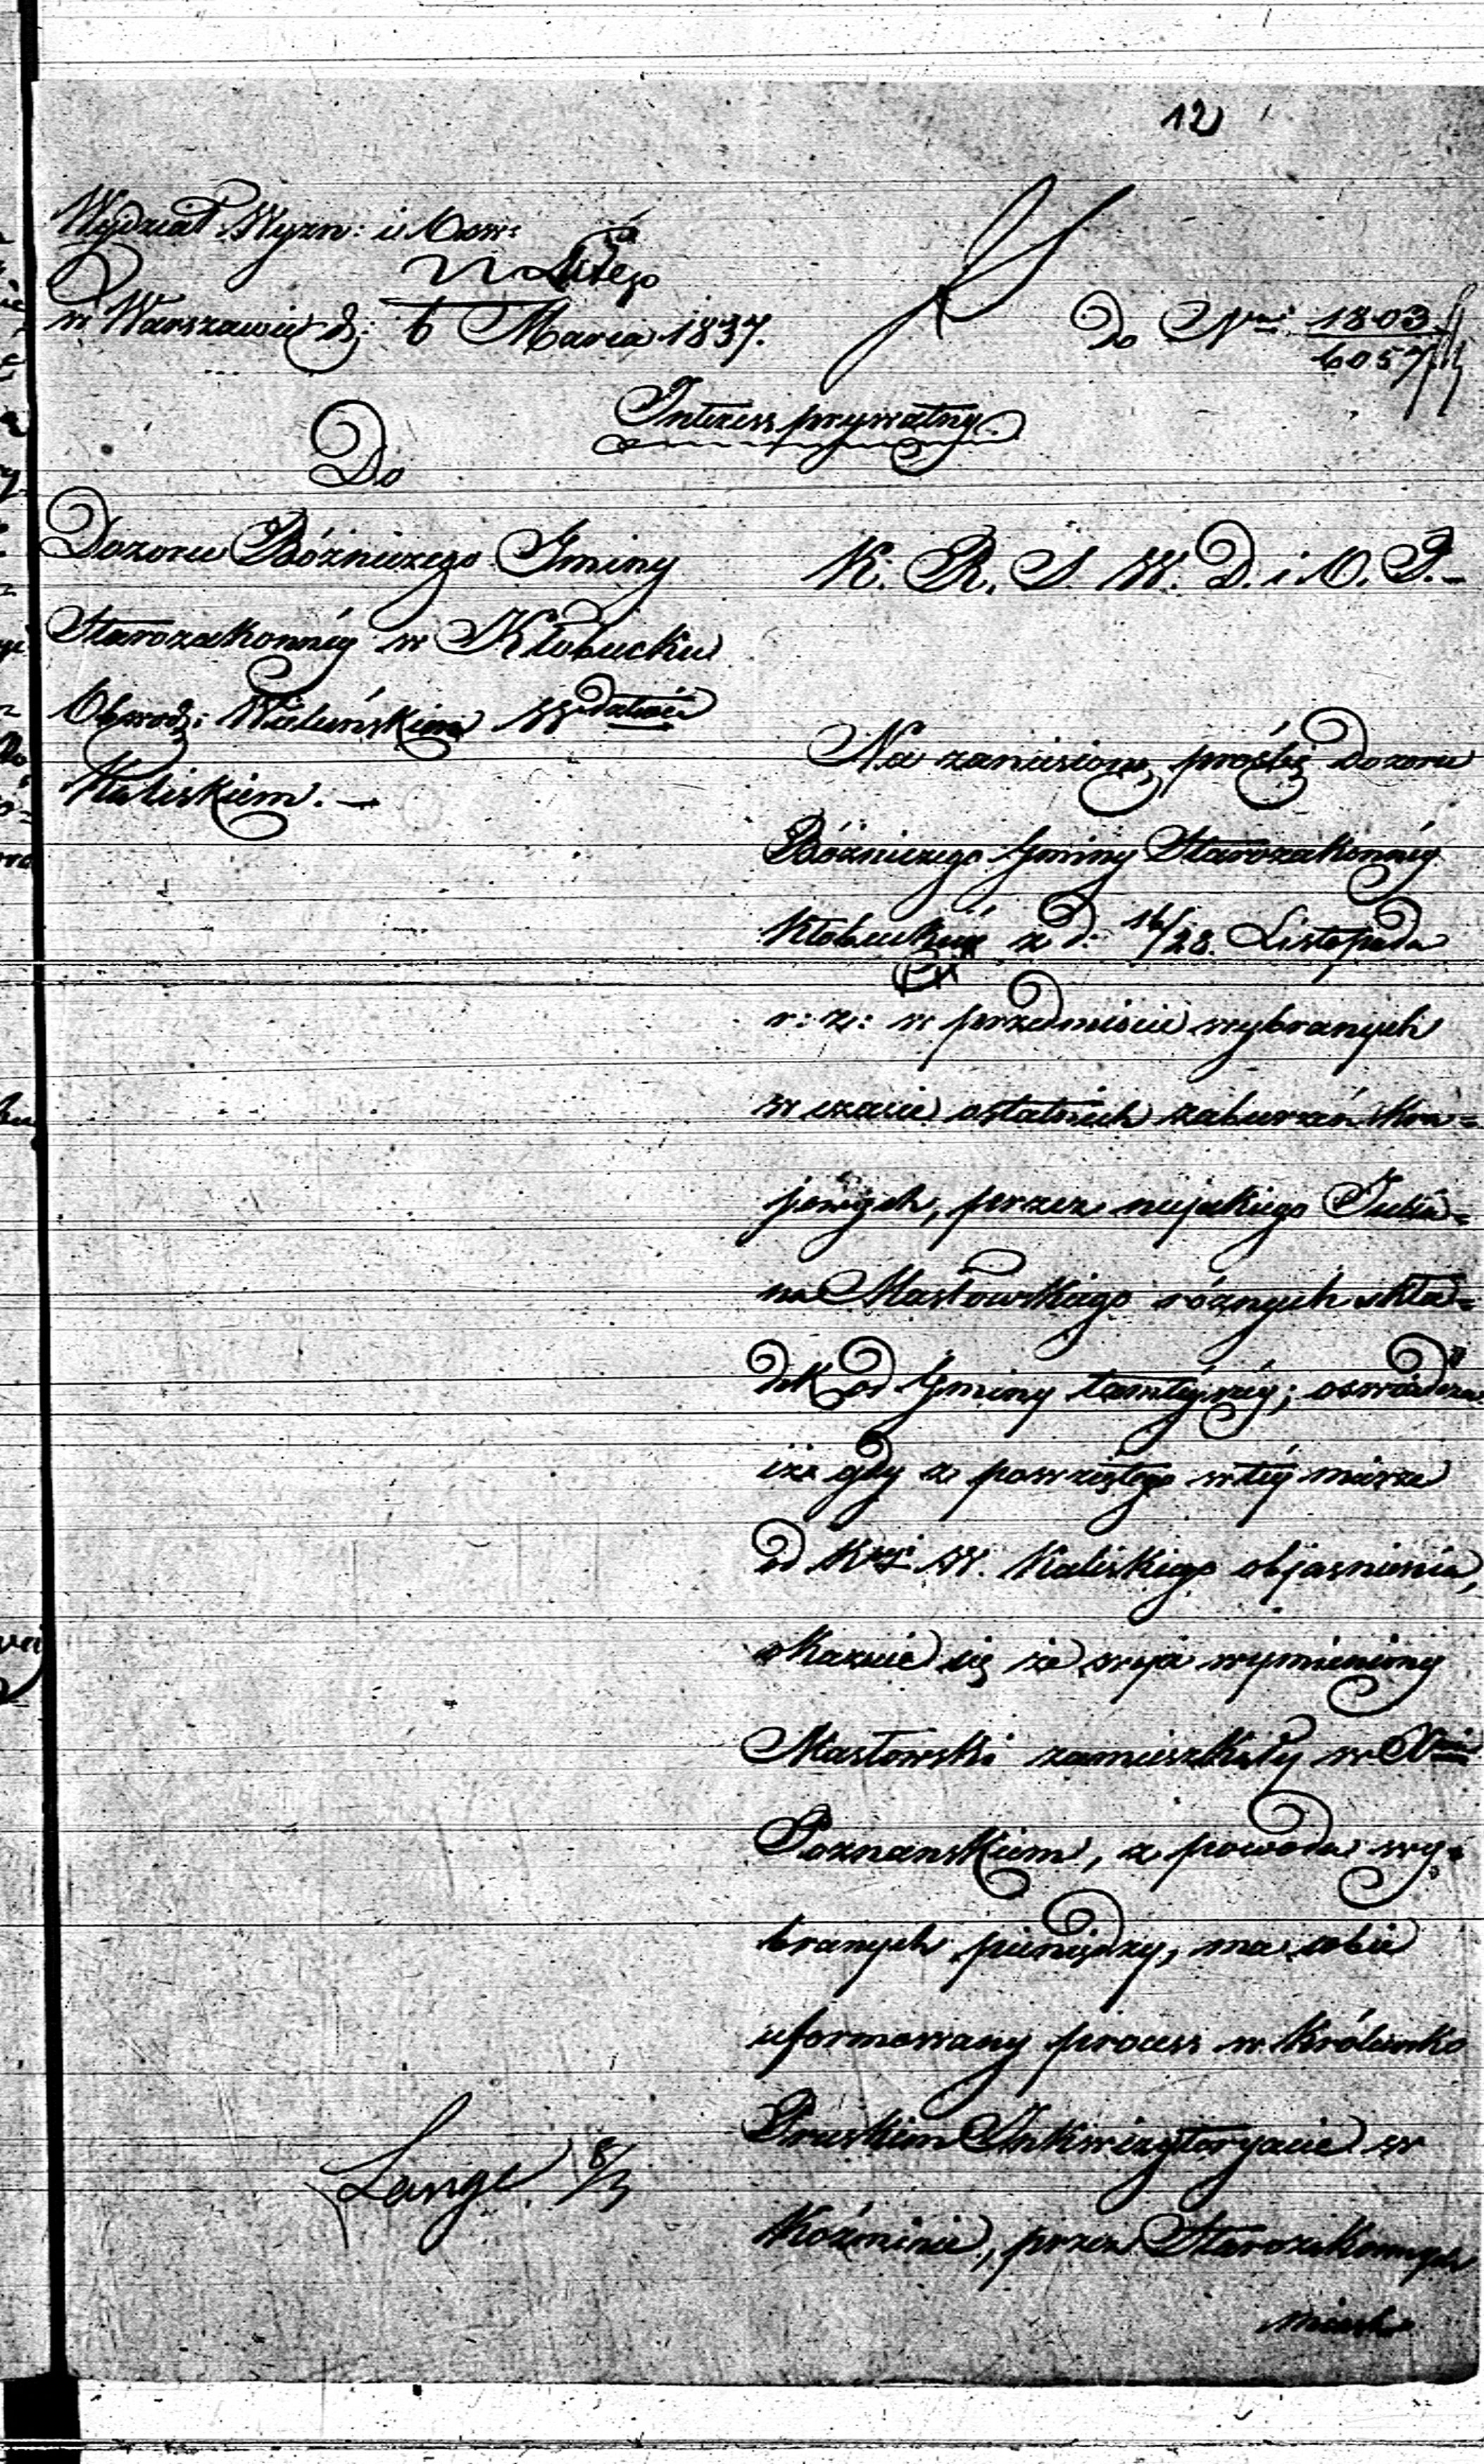 12
Wydział Wyzn: i Ośw:
22 Lutego
w Warszawie d: 6 Marca 1837.
Do Nru 1803
6057
Interess prywatny.
Do
Dozoru Bóżniczego Gminy
Starozakonnéy w Kłobucku
Obwodz: Wieluńskim Wdztwie
Kaliskiem. —
K. R. S. W. D. i O. P. —
Na zaniesioną prośbę Dozoru
Bóżniczego Gminy Starozakonnéy
Kłobuckiéj z d: 16/28. Listopada
r: z: w przedmiocie wybranych
w czasie ostatnich zaburzeń kra=
jowych, przez niejakiego Julia=
na Masłowskiego różnych skła=
dek od Gminy tamtéyszéy; oświadcza
iże gdy z powziętego w téy mierze
od Kssyi W. Kaliskiego objaśnienia,
okazuie się że wyż wymieniony
Masłowski zamieszkały w
Poznanskiem, z powodu wy=
branych pieniędzy, ma sobie
uformowany process w Królewsko
Pruskim Inkwizytoryacie w
Koźminie, przez Starozakonnych
miast
Lange 8/3